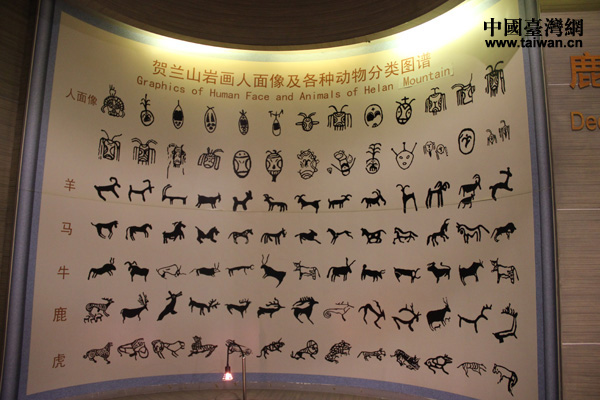 中國臺灣網
www.taiwan.cn
贺兰山岩画人面像及各种动物分类图谱
Graphics of Human Face and Animals of Helan Mountain
人面像
羊
马
牛
鹿
虎
鹿
Dee